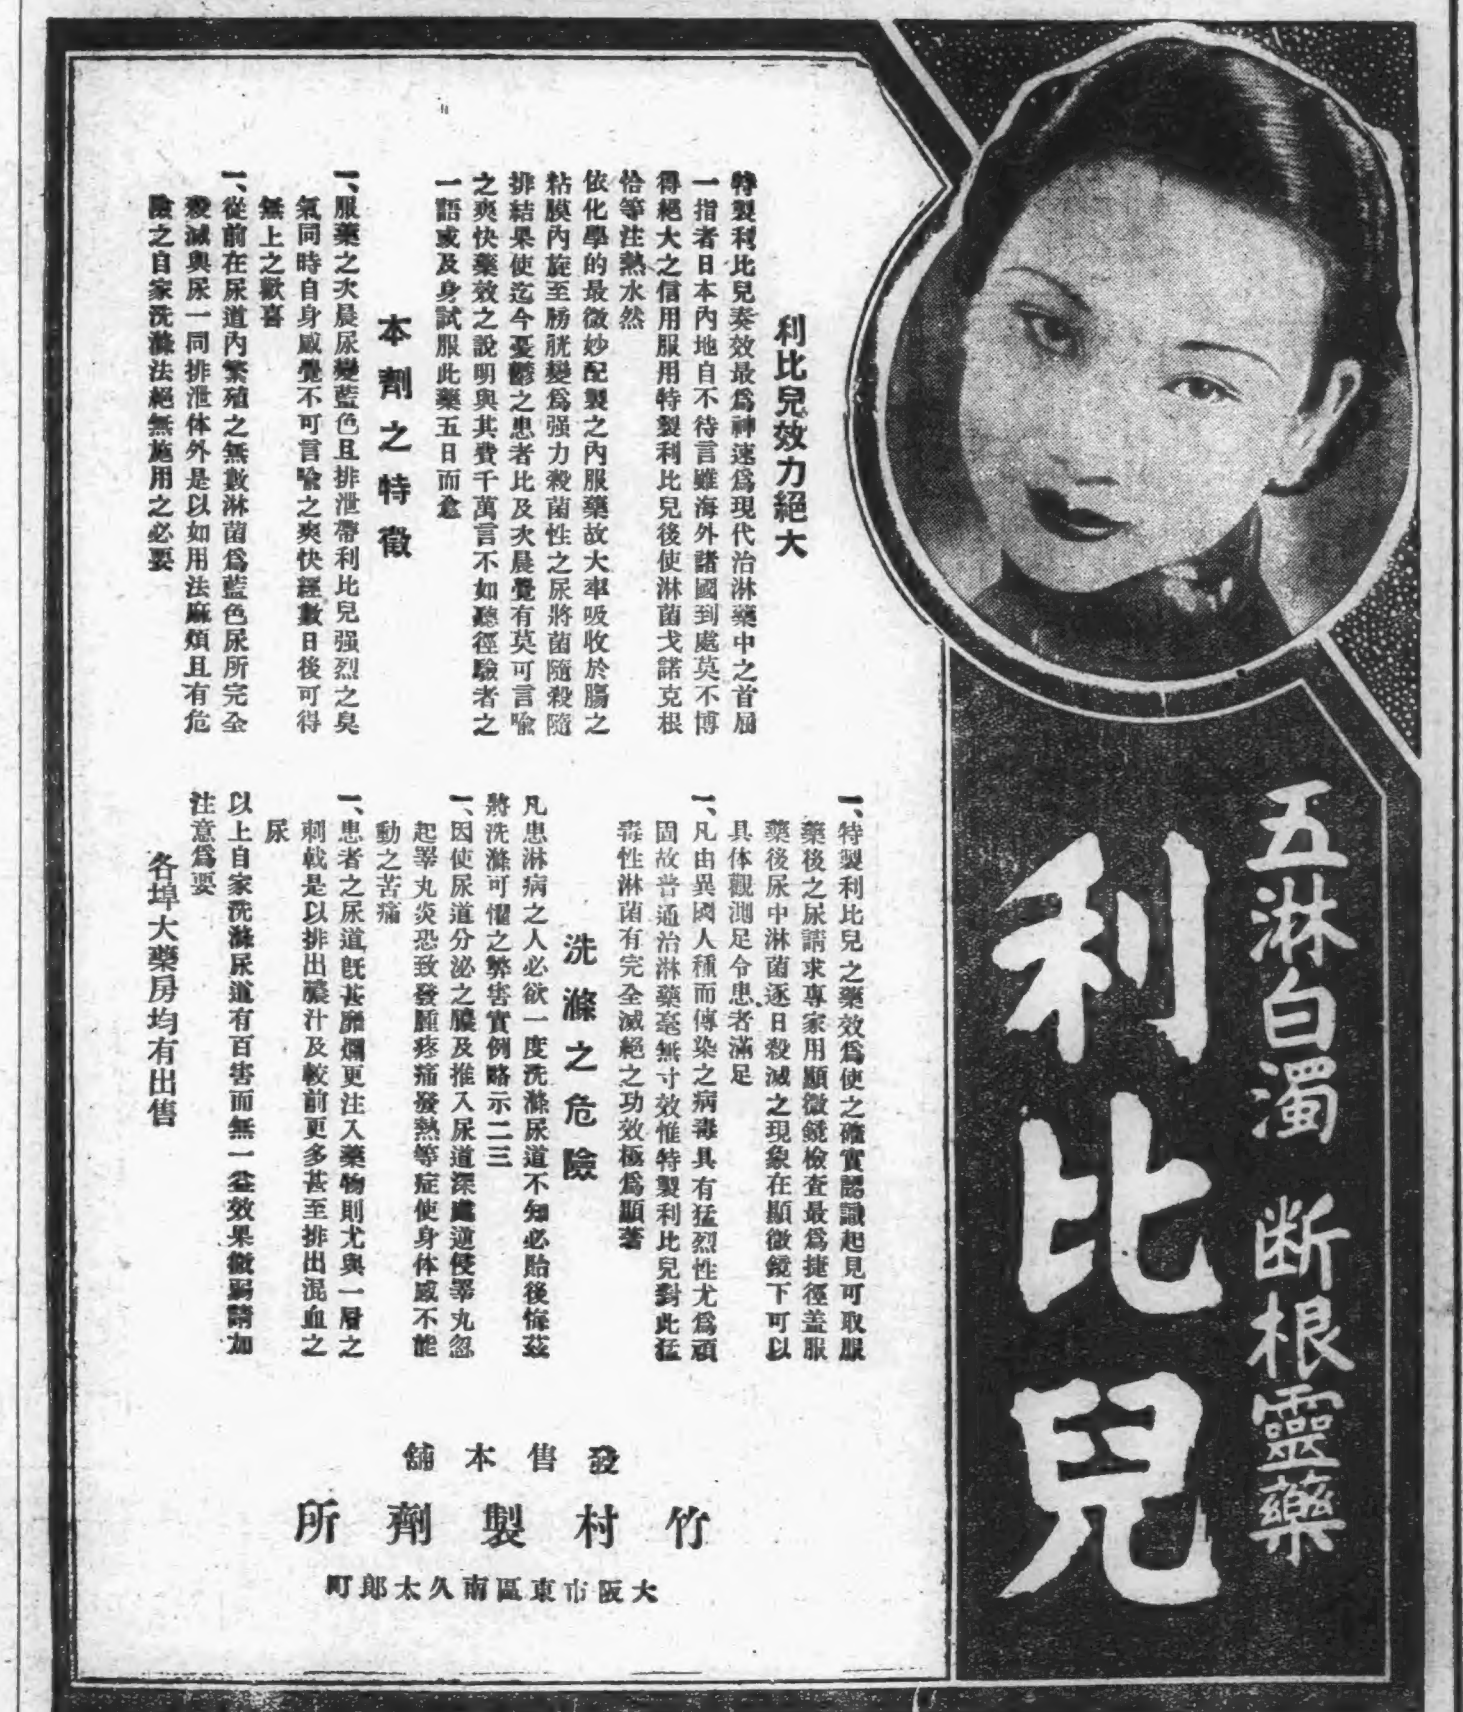 五淋白濁 断根靈藥
利比兒
利比兒效力絕大
特製利比兒奏效最爲神速爲現代治淋藥中之首屈
一指者日本內地自不待言雖海外諸國到處莫不博
得絕大之信用服用特製利比兒後使淋菌戈諾克根
恰等注熱水然
依化學的最微妙配製之內服藥故大率吸收於膓之
粘膜內旋至膀胱變爲强力殺菌性之尿將菌隨殺隨
排結果使迄今憂鬱之患者比及次晨覺有莫可言喻
之爽快藥效之說明與其費千萬言不如聽徑驗者之
一語或及身試服此藥五日而愈
本劑之特徵
一、服藥之次晨尿變藍色且排泄帶利比兒强烈之臭
氣同時自身感覺不可言喻之爽快經數日後可得
無上之歡喜
一、從前在尿道內繁殖之無數淋菌爲藍色尿所完全
殺滅與尿一同排泄体外是以如用法麻煩且有危
險之自家洗滌法絕無施用之必要
一、特製利比兒之藥效爲使之確實認識起見可取服
藥後之尿請求專家用顯微鏡檢査最爲捷徑盖服
藥後尿中淋菌逐日殺滅之現象在顯微鏡下可以
具体觀測足令患者滿足
一、凡由異國人種而傳染之病毒具有猛烈性尤爲頑
固故普通治淋藥毫無寸效惟特製利比兒對此猛
毒性淋菌有完全滅絕之功效極爲顯著
洗滌之危險
凡患淋病之人必欲一度洗滌尿道不知必貽後悔茲
將洗滌可懼之弊害實例略示二三
一、因使尿道分泌之膿及推入尿道深處逆侵睪丸忽
起睪丸炎恐致發腫疼痛發熱等症使身体感不能
動之苦痛
一、患者之尿道旣甚靡爛更注入藥物則尤與一層之
刺戟是以排出膿汁及較前更多甚至排出混血之
尿
以上自家洗滌尿道有百害而無一益效果微弱請加
注意爲要
各埠大藥房均有出售
發售本舖
竹村製劑所
大阪市東區南久太郎町